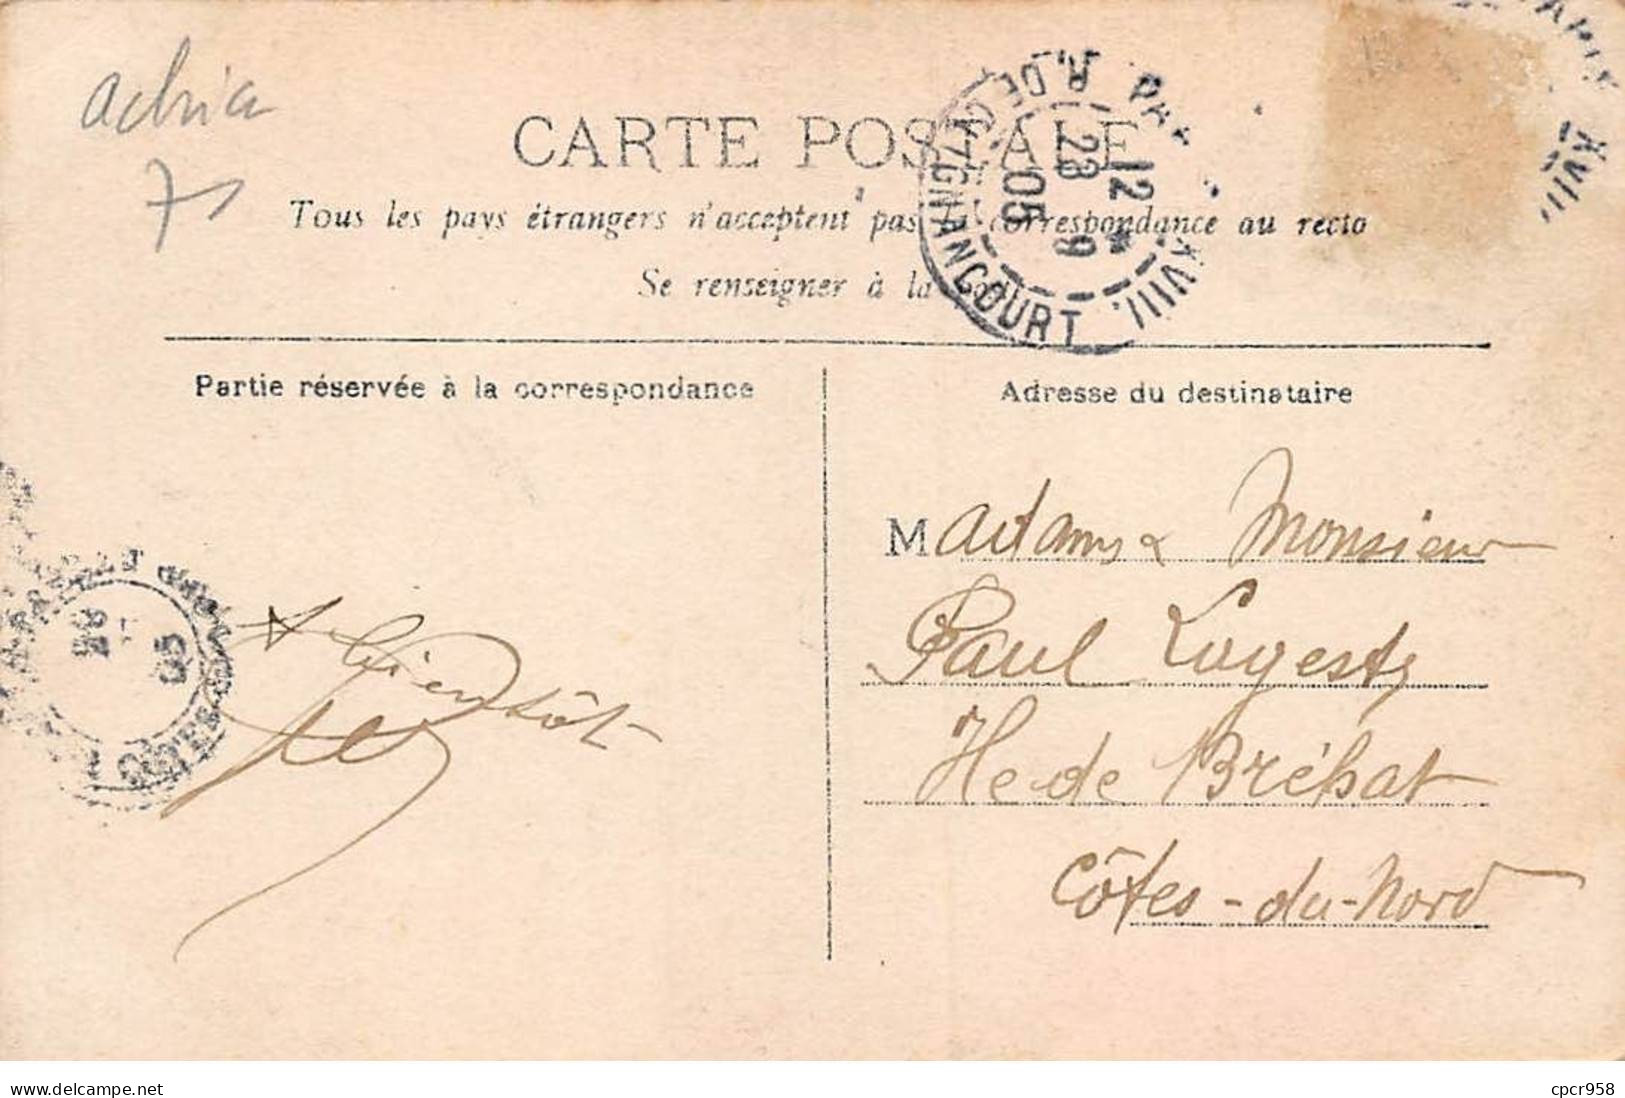 adria
75
CARTE POSTALE
Tous les pays étrangers n'acceptent pas la correspondance au recto
Se renseigner à la
PARIS XVIII. R. DE CLIGNANCOURT
12
23 * 9
05
XVIII
Partie réservée à la correspondance
Adresse du destinataire
A bientôt
Madame & Monsieur
Paul Lagesty
Ile de Bréhat
Côtes-du-Nord
05
delcampe.net
cpcr958